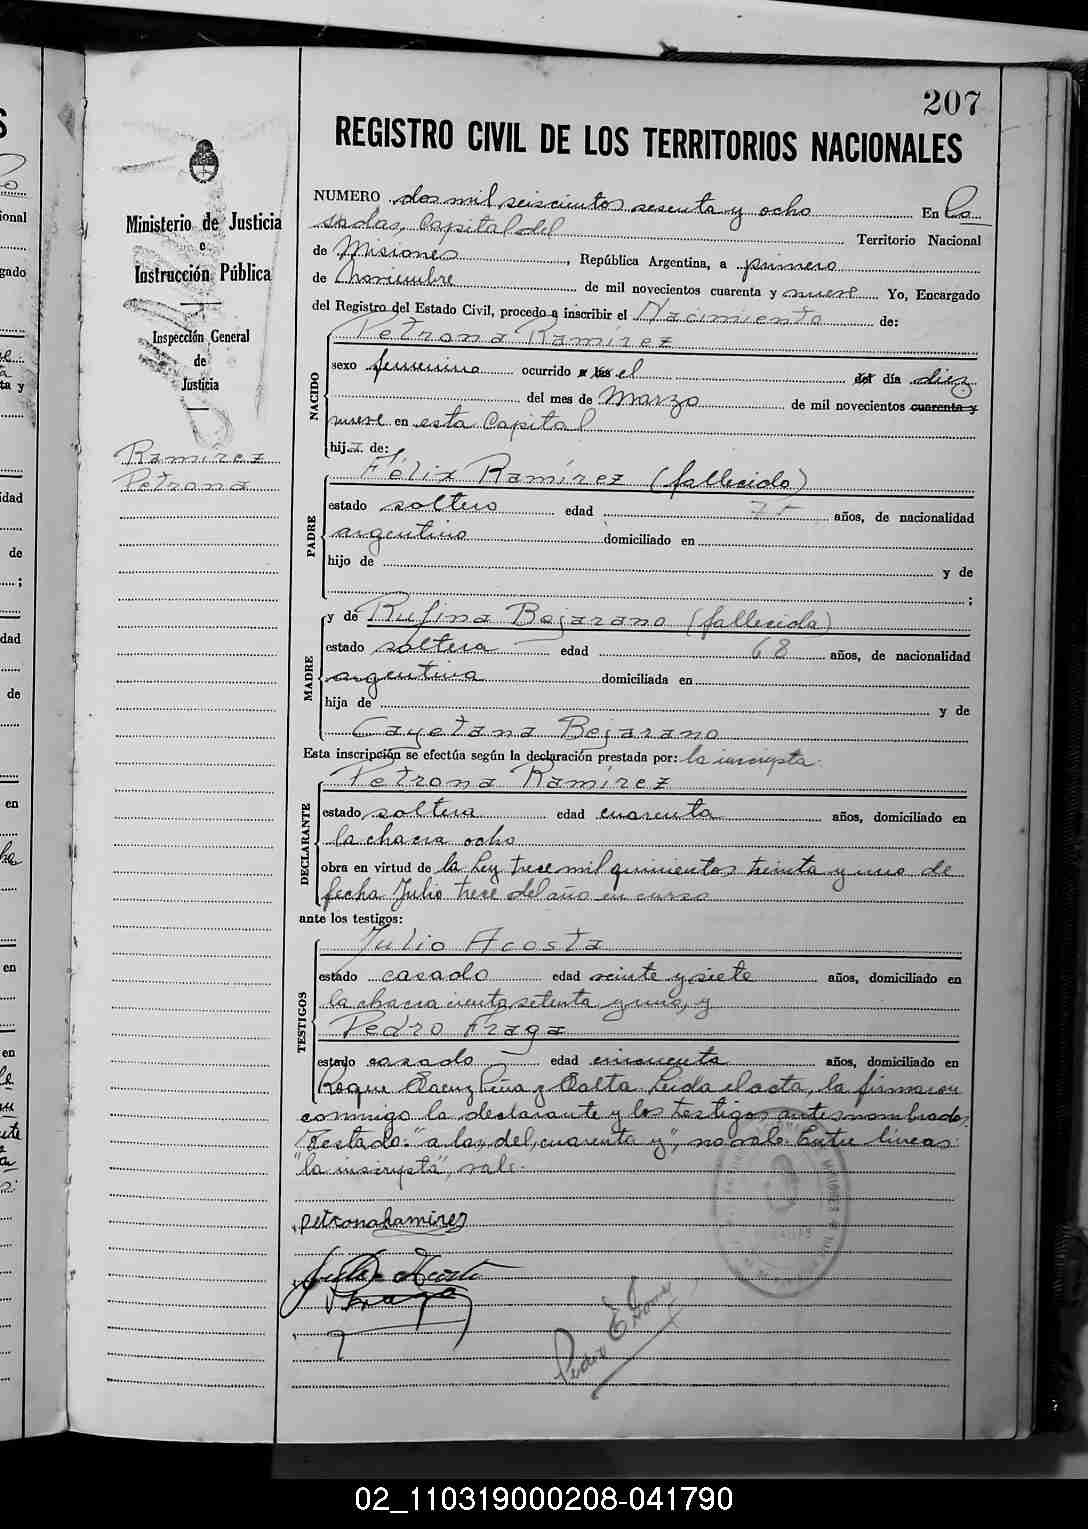 207
REGISTRO CIVIL DE LOS TERRITORIOS NACIONALES
Ministerio de Justicia
e
Instrucción Pública
Inspección General
de
Justicia
Ramírez
Petrona
NUMERO dos mil seiscientos sesenta y ocho En Po
sadas, Capital del Territorio Nacional
de Misiones, República Argentina, a primero
de Noviembre de mil novecientos cuarenta y nueve Yo, Encargado
del Registro del Estado Civil, procedo a inscribir el Nacimiento de:
Petrona Ramírez
NACIDO
sexo femenino ocurrido a las el del día diez
del mes de Marzo de mil novecientos cuarenta y
nueve en esta Capital
hija de:
Félix Ramírez (fallecido)
PADRE
estado soltero edad 75 años, de nacionalidad
argentino domiciliado en
hijo de y de
;
y de Rufina Bejarano (fallecida)
MADRE
estado soltera edad 68 años, de nacionalidad
argentina domiciliada en
hija de y de
Cayetana Bejarano
Esta inscripción se efectúa según la declaración prestada por: la inscripta
Petrona Ramírez
DECLARANTE
estado soltera edad cuarenta años, domiciliado en
la chacra ocho
obra en virtud de la Ley trece mil quinientos treinta y uno de
fecha Julio trece del año en curso
ante los testigos:
Julio Acosta
TESTIGOS
estado casado edad veinte y siete años, domiciliado en
la chacra ciento setenta y uno, y
Pedro Fraga
estado casado edad cincuenta años, domiciliado en
Roque Saenz Peña y Salta. Leida el acta, la firmaron
conmigo la declarante y los testigos antes nombrados.
Testado: "a las, del, cuarenta y", no vale. Entre lineas:
"la inscripta", vale.
petrona Ramirez
Julio Acosta
Fraga
Pedro E
02_110319000208-041790